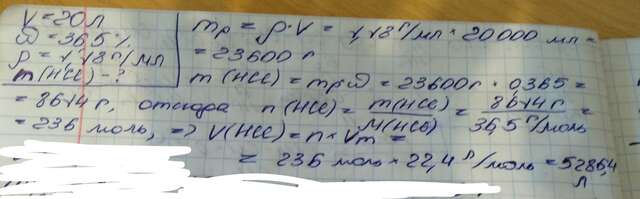 V = 20 л
ω = 36,5 %
ρ = 1,18 г/мл
m(HCl) - ?
mр = ρ·V = 1,18 г/мл * 20 000 мл =
= 23600 г
m(HCl) = mр·ω = 23600 г · 0,365 =
= 8614 г, откуда n(HCl) = m(HCl)/M(HCl) = 8614 г/36,5 г/моль =
= 236 моль, => V(HCl) = n * Vm =
= 236 моль * 22,4 л/моль = 5286,4 л